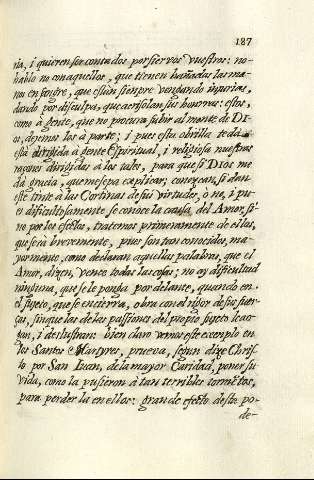 187
na, i quieren ser contados por siervos vuestros: no
hablo no con aquellos, que tienen bañadas las ma-
nos en sangre, que estàn siempre vengando injurias,
dando por disculpa, que acrisolan sus honrras: estos,
como à gente, que no procura subir al monte de DI-
OS, dejemos los à parte; i pues esta obrilla
està dirigida à gente Espiritual, i religiosa nuestras
raçones dirigidas à los tales, para que si DIOS me
dà gracia, que me sepa explicar; conozcan si dan
este tinte à las Cortinas de sus virtudes, ò no, i pu-
es dificultosamente se conoce la causa del Amor, si-
no por los efectos, tratemos primeramente de ellos,
que serà brevemente, pues son tan conocidos, ma-
yormente, como declaran aquellas palabras, que el
Amor, dizen, vence todas las cosas; no ay dificultad
ninguna, que se le ponga por delante, quando en
el sugeto, que se encierra, obra con el rigor de sus fuer-
ças, sin que las de las passiones del propio sugeto le ata-
jen, i deslustran: bien claro vemos este exemplo en
los Santos Martyres, prueva, segun dize Chris-
to por San Iuan, de la mayor Caridad, poner su
vida, como la pusieron à tan terribles tormẽtos,
para perder la en ellos: grande efecto deste po-
de-